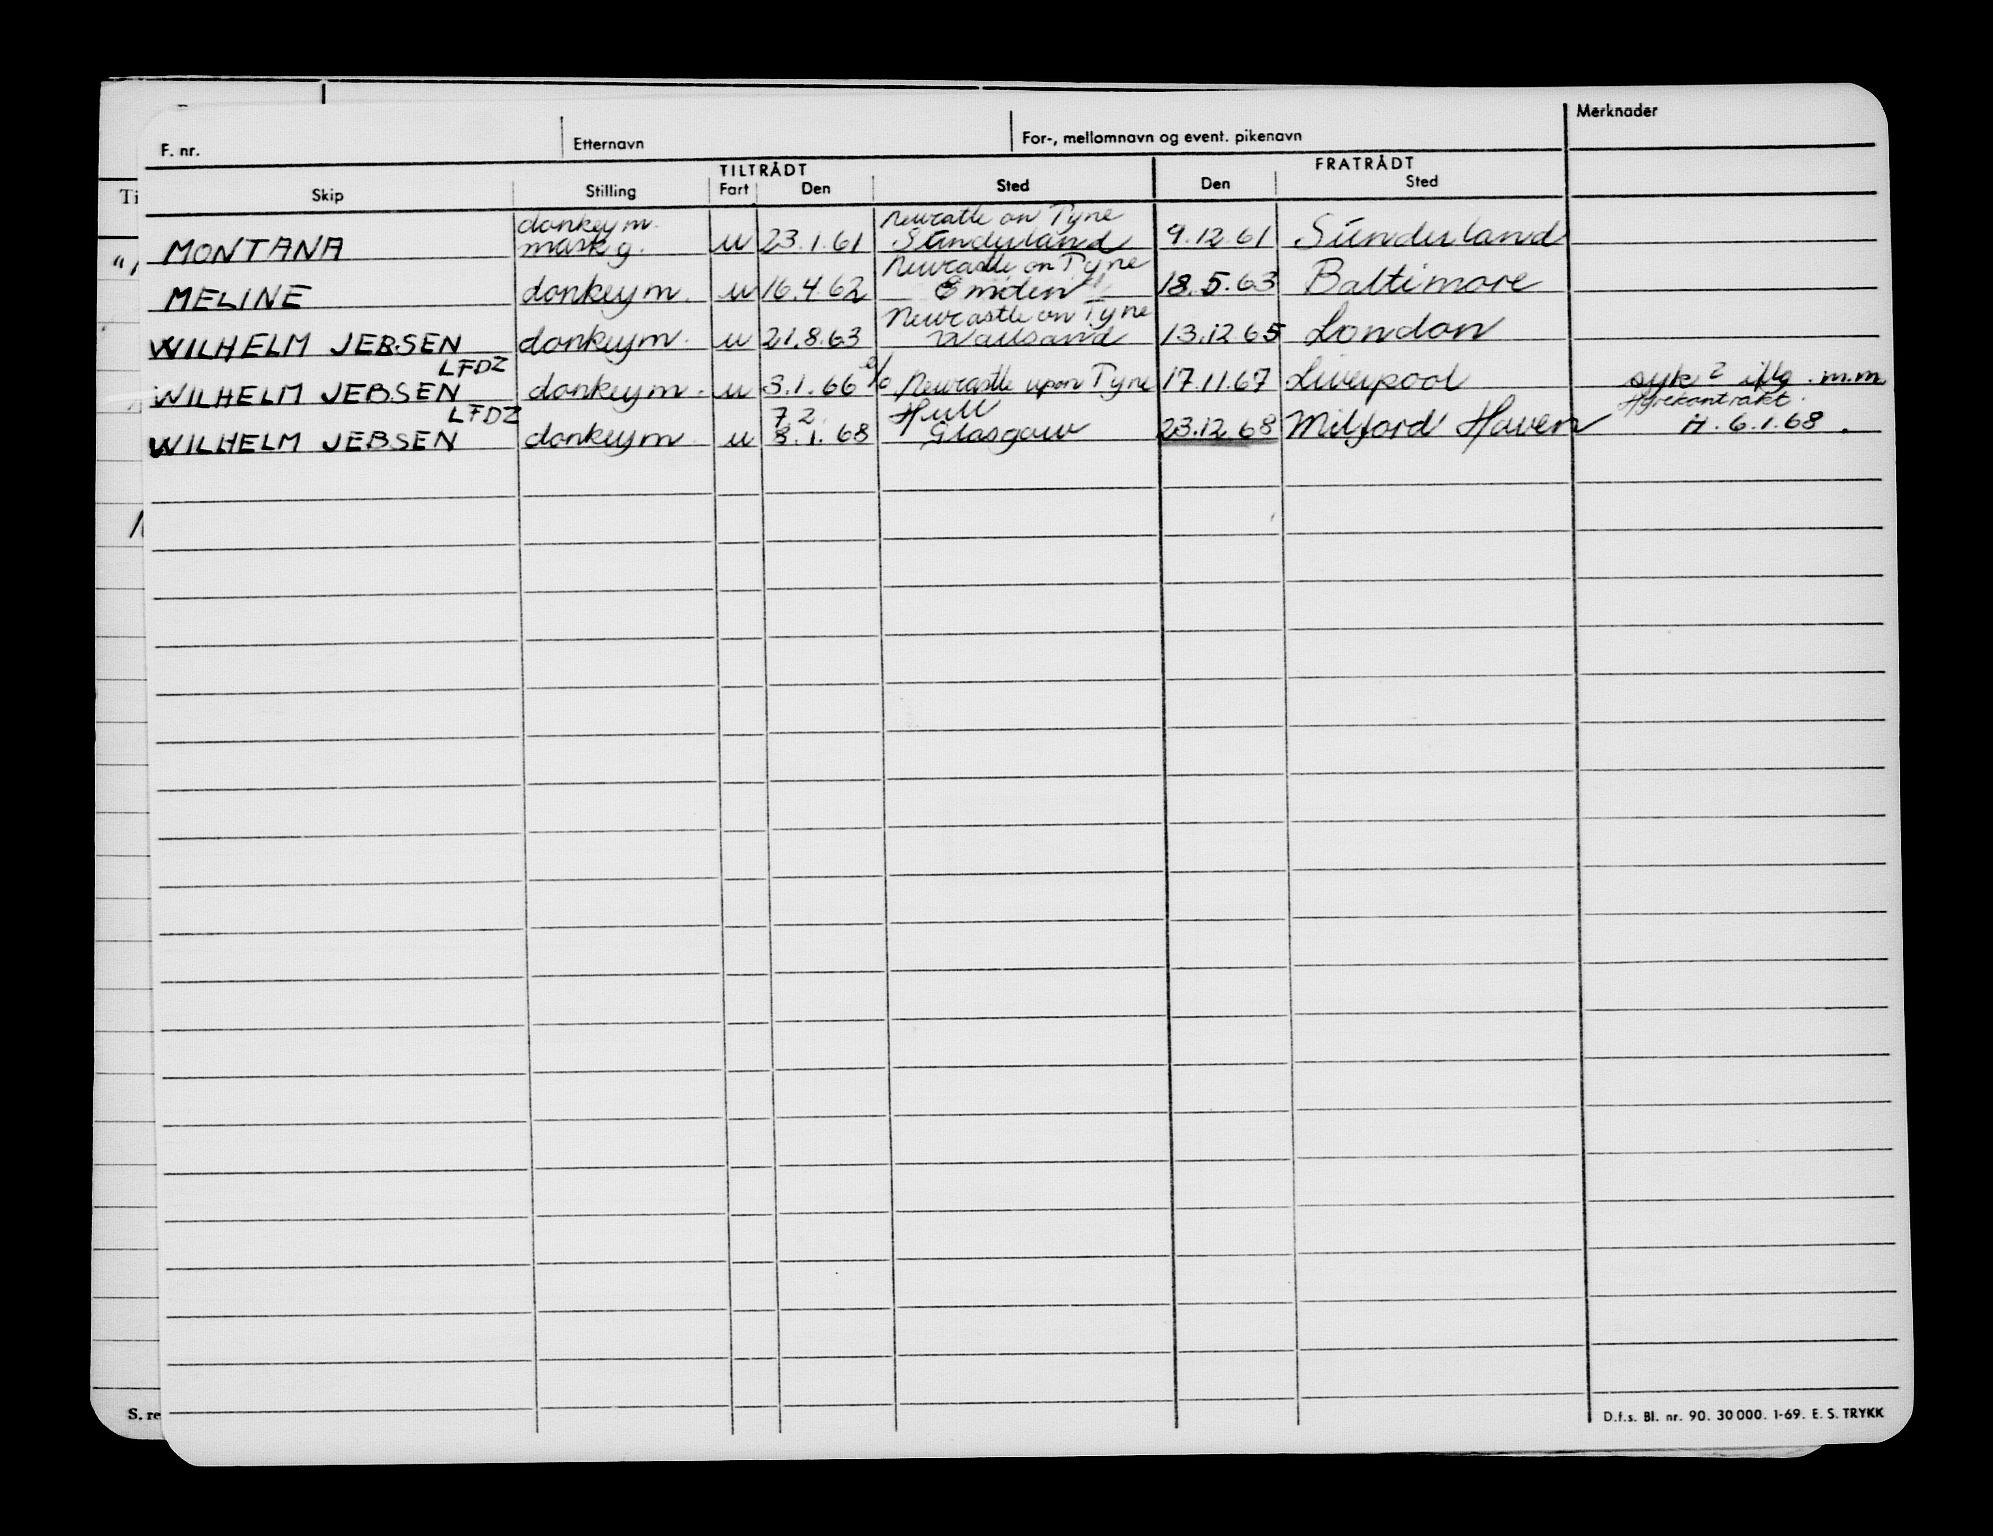 Merknader
F. nr. Etternavn For-, mellomnavn og event. pikenavn
TILTRÅDT FRATRÅDT
Skip Stilling Fart Den Sted Den Sted
donkeym. Newcastle on Tyne
MONTANA maskg. u 23.1.61 Sunderland 9.12.61 Sunderland
Newcastle on Tyne
MELINE donkeym. u 16.4.62 Emden 18.5.63 Baltimore
Newcastle on Tyne
WILHELM JEBSEN donkeym. u 21.8.63 13.12.65 London
LFDZ
WILHELM JEBSEN donkeym. u 3.1.66 Newcastle upon Tyne 17.11.67 Liverpool syk? iflg. m.m
LFDZ 7 2 Hull Hyrekontrakt.
WILHELM JEBSEN donkeym u 8.1.68 Glasgow 23.12.68 Milford Haven H. 6.1.68.
Ti
S. re
D.f.s. Bl. nr. 90. 30 000. 1-69. E. S. TRYKK